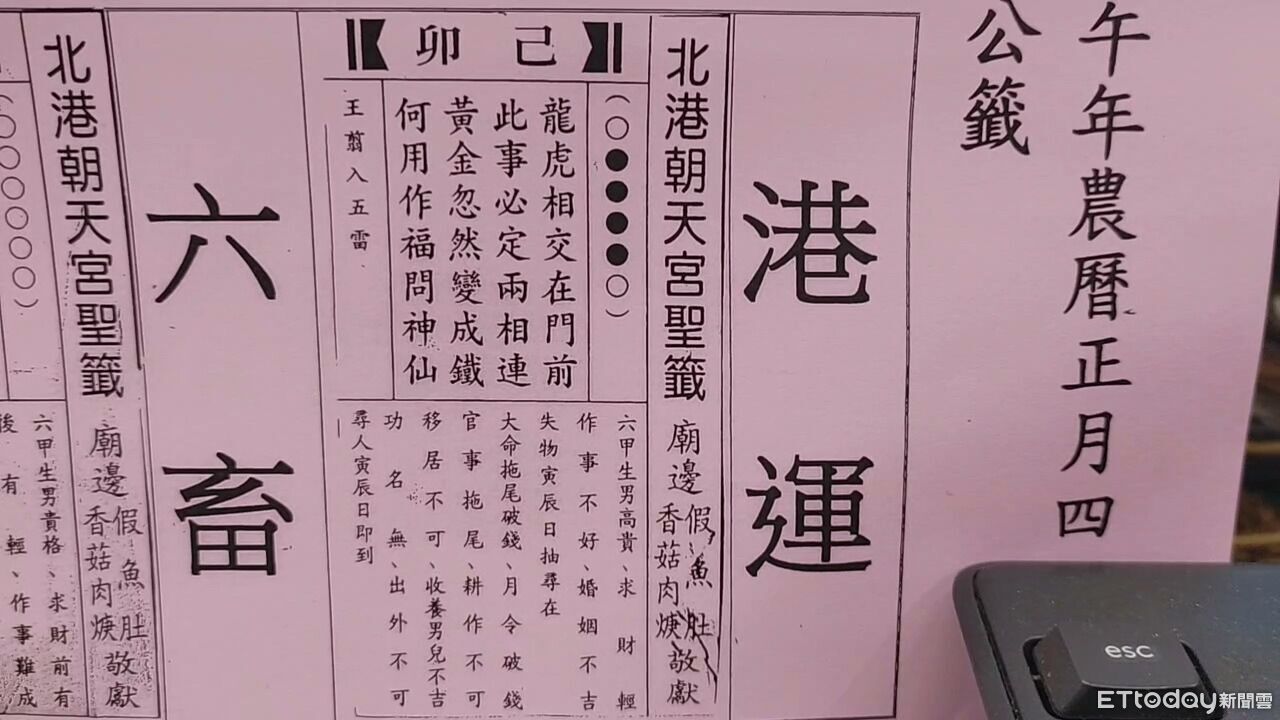 午年農曆正月四
公籤
港運
北港朝天宮聖籤
廟邊假魚肚
香菇肉焿敬獻
己卯
(○●●●●○)
龍虎相交在門前
此事必定兩相連
黃金忽然變成鐵
何用作福問神仙
王翦入五雷
六甲生男高貴、求財輕
作事不好、婚姻不吉
失物寅辰日抽尋在
大命拖尾破錢、月令破錢
官事拖尾、耕作不可
移居不可、收養男兒不吉
功名無、出外不可
尋人寅辰日即到
六畜
北港朝天宮聖籤
廟邊假魚肚
香菇肉焿敬獻
(○○○○○○)
六甲生男貴格、求財前有
後有輕、作事難成
esc
ETtoday新聞雲